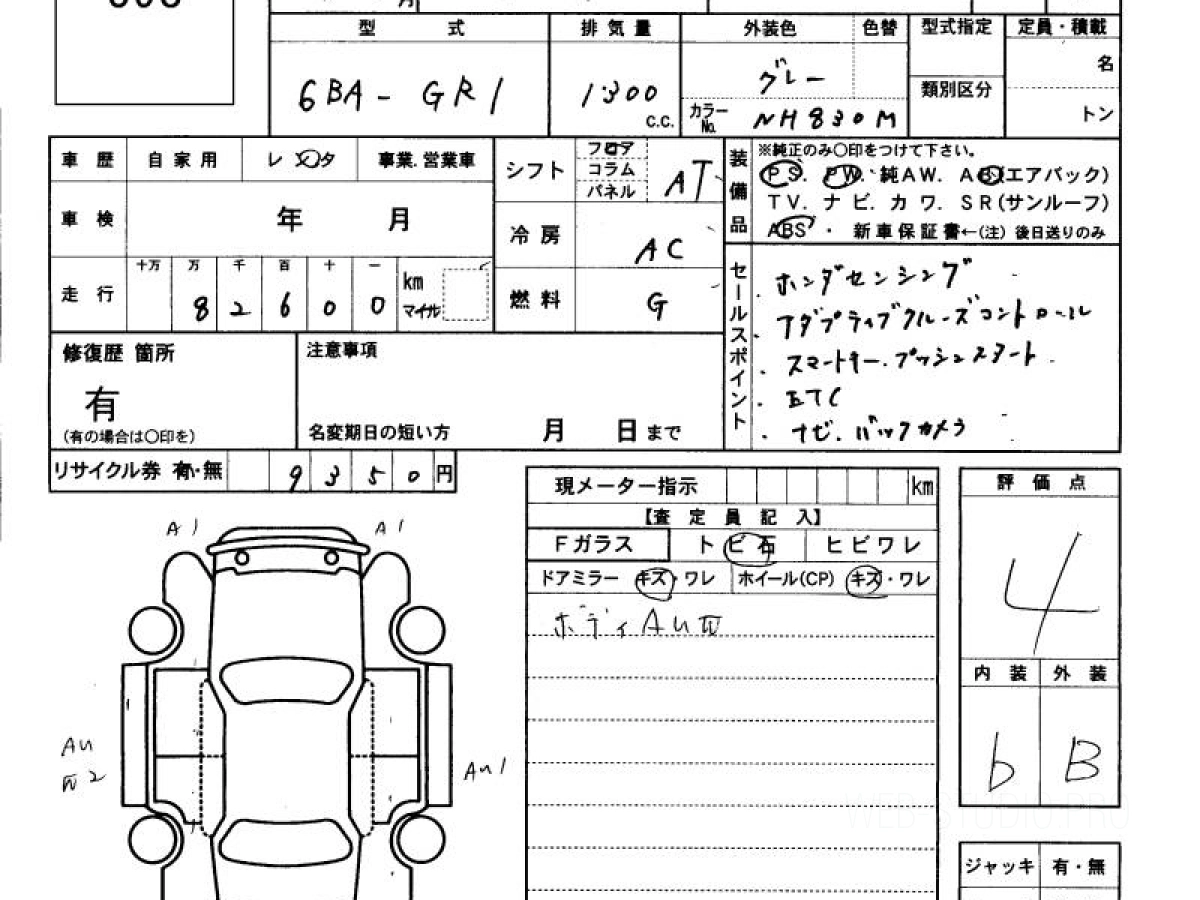 月
型 式 排気量 外装色 色替 型式指定 定員・積載
6BA - GR1 1300 c.c. グレー 名
カラーNo. NH830M 類別区分 トン
車歴 自家用 レンタ 事業.営業車
車検 年 月
走行 十万 万 千 百 十 一 km マイル
8 2 6 0 0
シフト フロア コラム パネル AT
冷房 AC
燃料 G
装備品 ※純正のみ〇印をつけて下さい。
PS. PW. 純AW. AB(エアバック)
TV. ナビ. カワ. SR(サンルーフ)
ABS ・ 新車保証書←(注) 後日送りのみ
セールスポイント
・ホンダセンシング
・アダプティブクルーズコントロール
・スマートキー.プッシュスタート
・ETC
・ナビ. バックカメラ
修復歴 箇所
有
(有の場合は〇印を)
注意事項
名変期日の短い方 月 日まで
リサイクル券 有・無 9350円
現メーター指示 km
【査定員記入】
Fガラス トビ石 ヒビワレ
ドアミラー キズ・ワレ ホイール(CP) キズ・ワレ
ボディ AU
評価点
4
内装 外装
b B
A1 A1
AU
2
AU1
ジャッキ 有・無
WEB-STUDIO.PRO